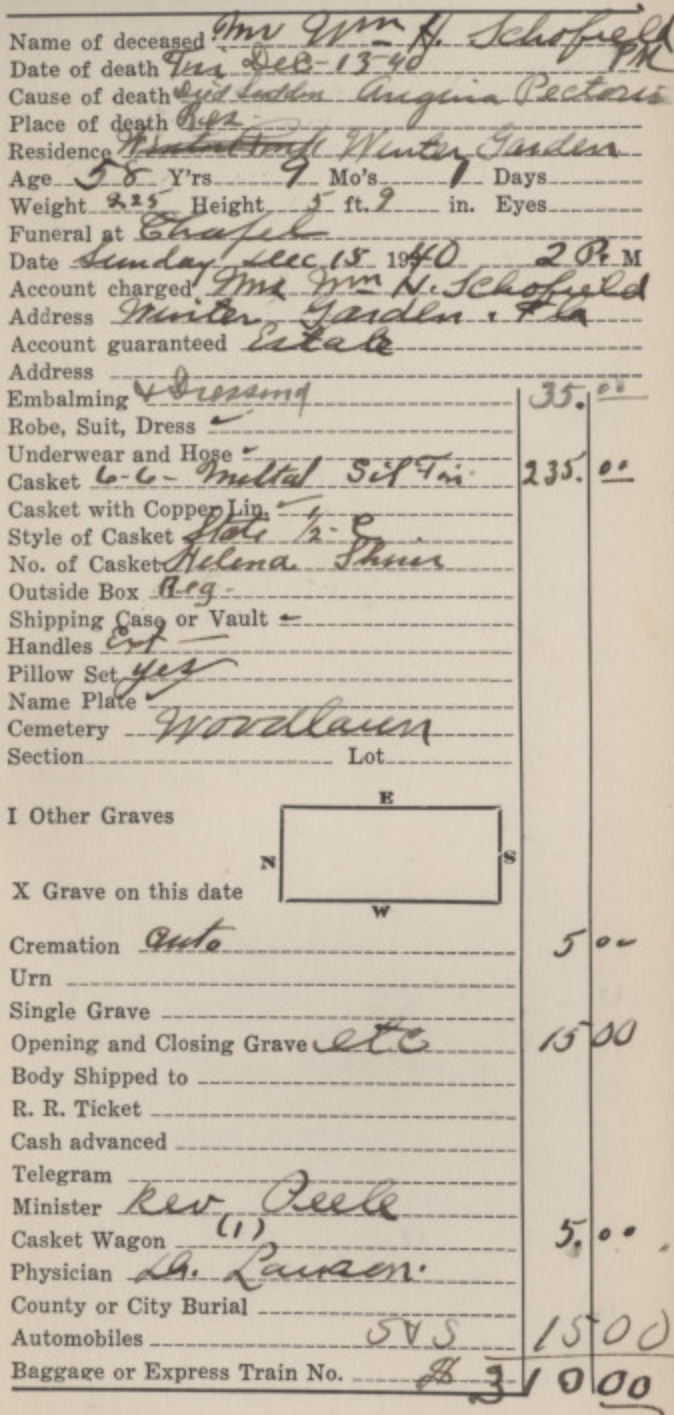 Name of deceased Mr Wm H. Schofield
Date of death Fri Dec-13-40 PM
Cause of death Died Sudden Angina Pectoris
Place of death Res-
Residence Winter Garden
Age 58 Y'rs 9 Mo's 1 Days
Weight 225 Height 5 ft. 9 in. Eyes
Funeral at Chapel
Date Sunday Dec 15 1940 2 P. M
Account charged Mrs Wm H. Schofield
Address Winter Garden. Fla
Account guaranteed Estate
Address
Embalming & Dressing 35.00
Robe, Suit, Dress
Underwear and Hose
Casket 6-6- Mettal Sil Tin 235.00
Casket with Copper Lin.
Style of Casket State 1/2-C
No. of Casket Helena
Outside Box Reg-
Shipping Case or Vault
Handles Ext
Pillow Set yes
Name Plate
Cemetery Woodlawn
Section Lot
E
I Other Graves
N S
X Grave on this date
W
Cremation Auto 5 00
Urn
Single Grave
Opening and Closing Grave etc 15 00
Body Shipped to
R. R. Ticket
Cash advanced
Telegram
Minister Rev Peele
Casket Wagon (1) 5.00
Physician Dr. Lawson.
County or City Burial
Automobiles S & S 15 00
Baggage or Express Train No. $ 310 00